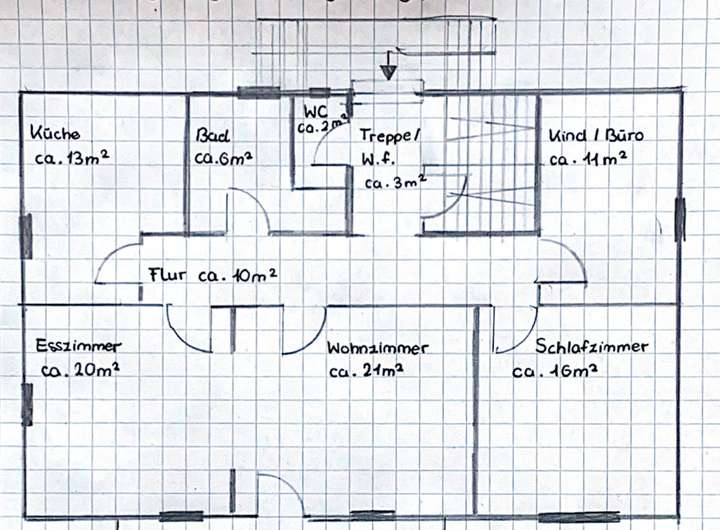 Küche
ca. 13m²
Bad
ca. 6m²
WC
ca. 2m²
Treppe/
W.f.
ca. 3m²
Kind / Büro
ca. 11m²
Flur ca. 10m²
Esszimmer
ca. 20m²
Wohnzimmer
ca. 21m²
Schlafzimmer
ca. 16m²